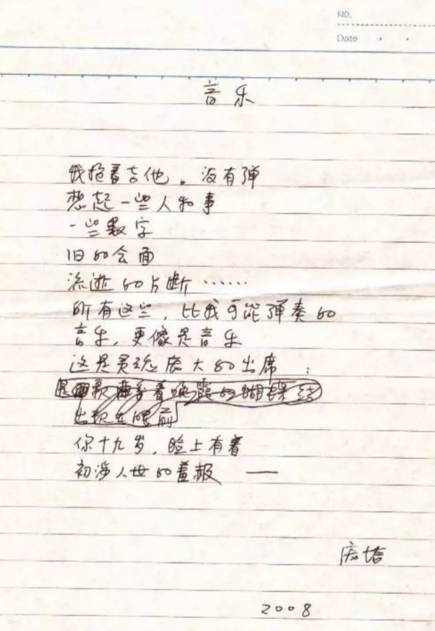 NO.
Date
音乐
我抱着吉他。没有弹
想起一些人和事
一些数字
旧的会面
流逝的片断……
所有这些，比我可能弹奏的
音乐，更像是音乐
这是灵魂庞大的出席：
出现在眼前
你十九岁，脸上有着
初涉人世的羞赧——
庞培
2008